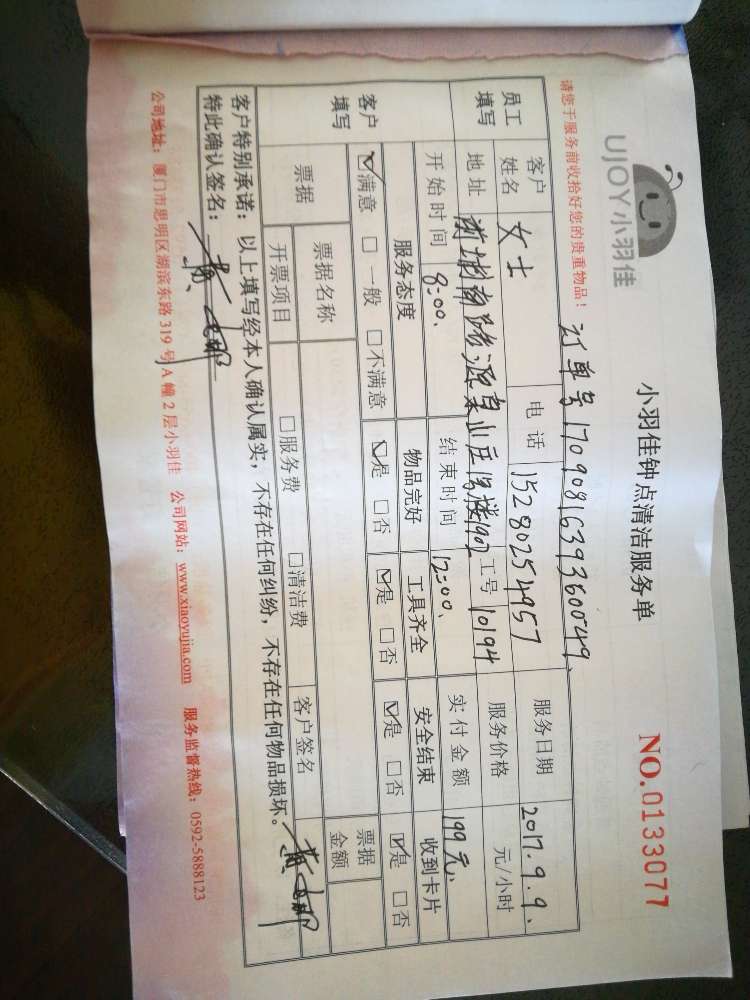 UJOY小羽佳
小羽佳钟点清洁服务单
NO.0133077
请您于服务前收拾好您的贵重物品！
订单号17090816393600049
员工填写
客户姓名 女士 电话 15280254957 服务日期 2017.9.9.
地址 工号 10194 服务价格 元/小时
开始时间 8:00、 结束时间 12:00、 实付金额 199元、
客户填写
服务态度 物品完好 工具齐全 安全结束 收到卡片
☑满意 □一般 □不满意 ☑是 □否 ☑是 □否 ☑是 □否 ☑是 □否
票据 票据名称 票据金额
开票项目 □服务费 □清洁费 客户签名
客户特别承诺：以上填写经本人确认属实，不存在任何纠纷，不存在任何物品损坏。
特此确认签名：
公司地址：厦门市思明区湖滨东路319号A幢2层小羽佳 公司网站：www.xiaoyujia.com 服务监督热线：0592-5888123